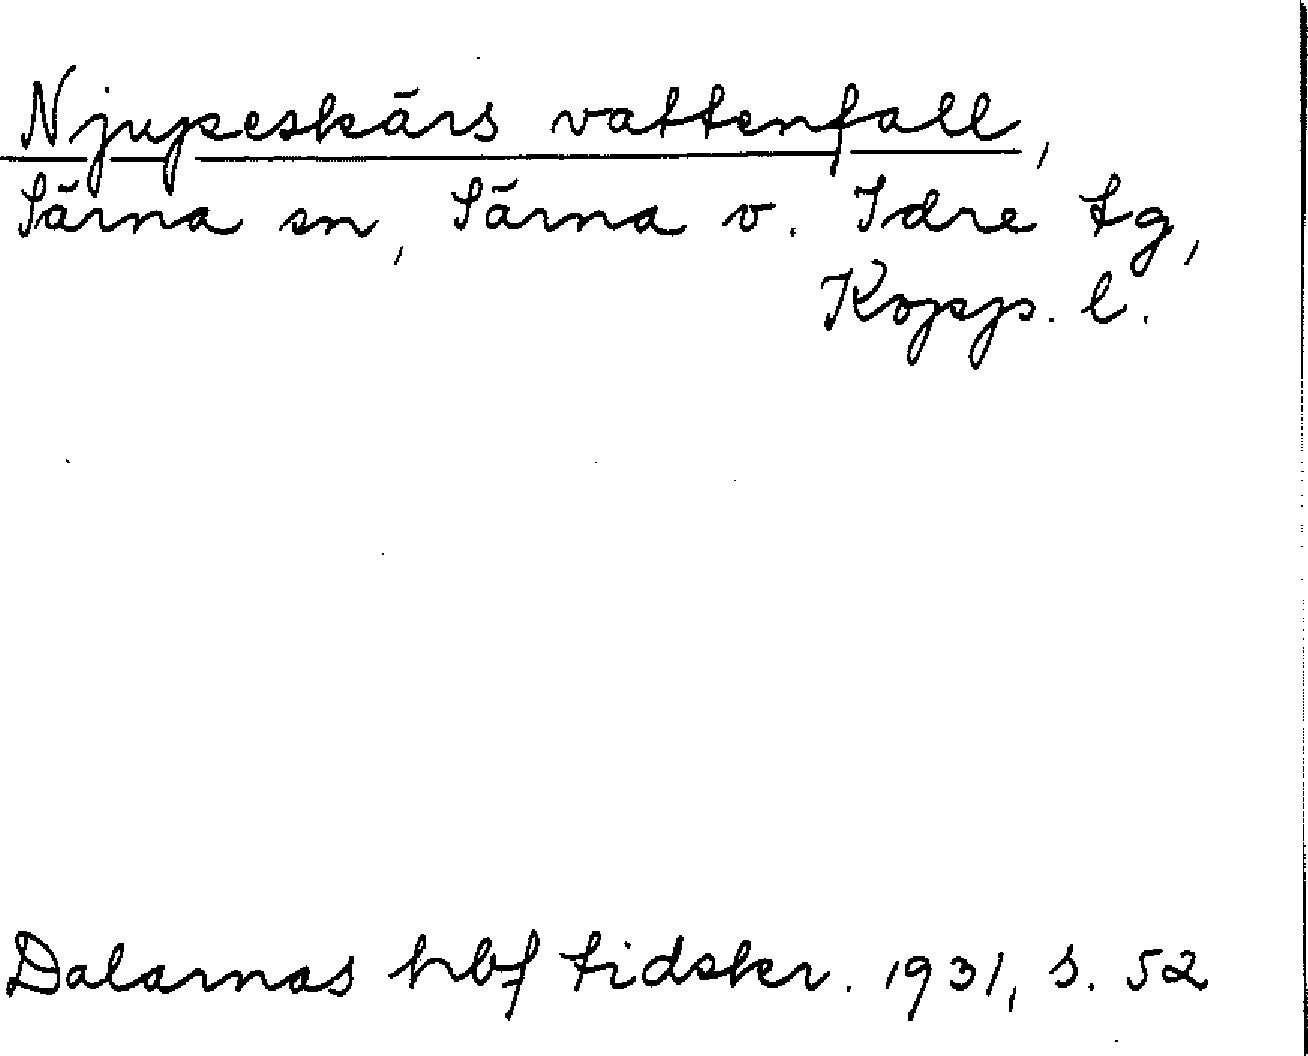 Njupeskärs vattenfall,
Särna sn, Särna o. Idre tg,
Kopp. l.
Dalarnas hbf tidskr. 1931, s. 52